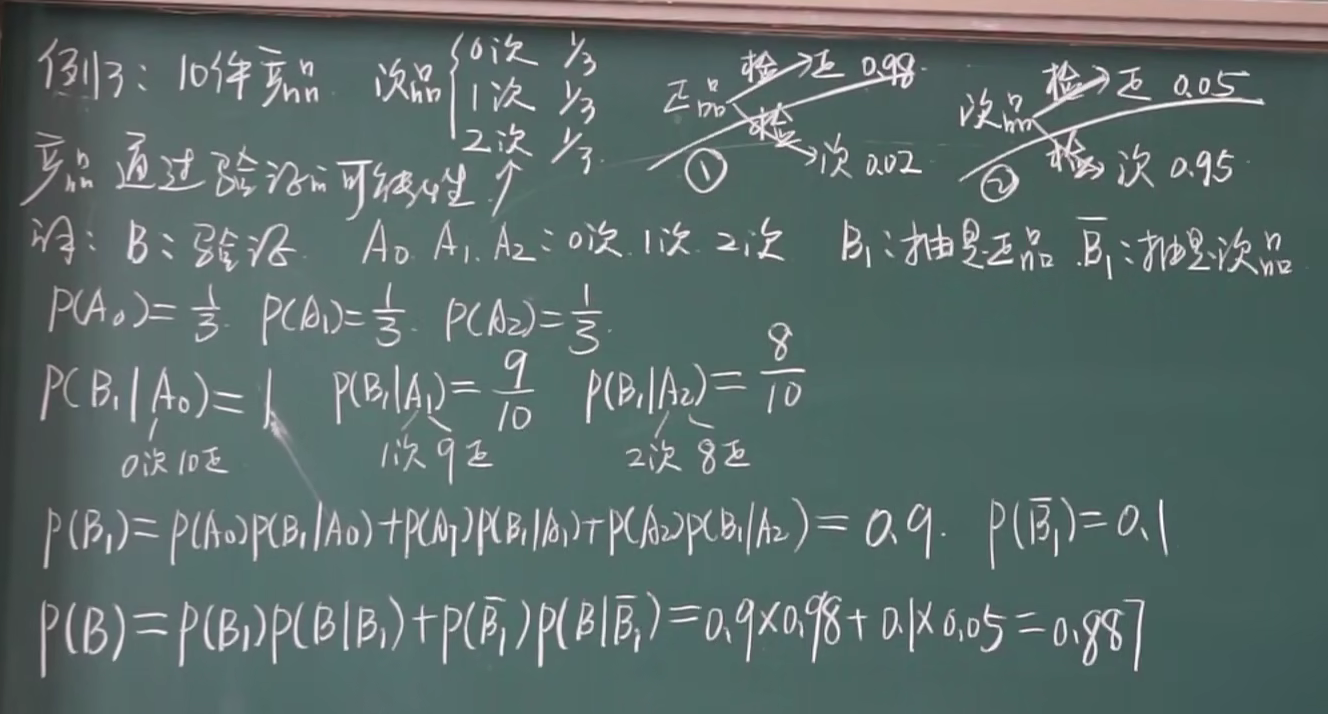 例3: 10件产品 次品 { 0次 1/3 正品 检→正 0.98 次品 检→正 0.05
1次 1/3 检
2次 1/3 ① 次 0.02 ② 检 次 0.95
产品通过验收的可能性
设: B: 验收 A₀ A₁ A₂: 0次 1次 2次 B₁: 抽是正品 B̅₁: 抽是次品
P(A₀)=1/3 P(A₁)=1/3 P(A₂)=1/3
P(B₁|A₀)=1 P(B₁|A₁)=9/10 P(B₁|A₂)=8/10
0次10正 1次9正 2次8正
P(B₁)=P(A₀)P(B₁|A₀)+P(A₁)P(B₁|A₁)+P(A₂)P(B₁|A₂)=0.9 P(B̅₁)=0.1
P(B)=P(B₁)P(B|B₁)+P(B̅₁)P(B|B̅₁)=0.9×0.98+0.1×0.05=0.887